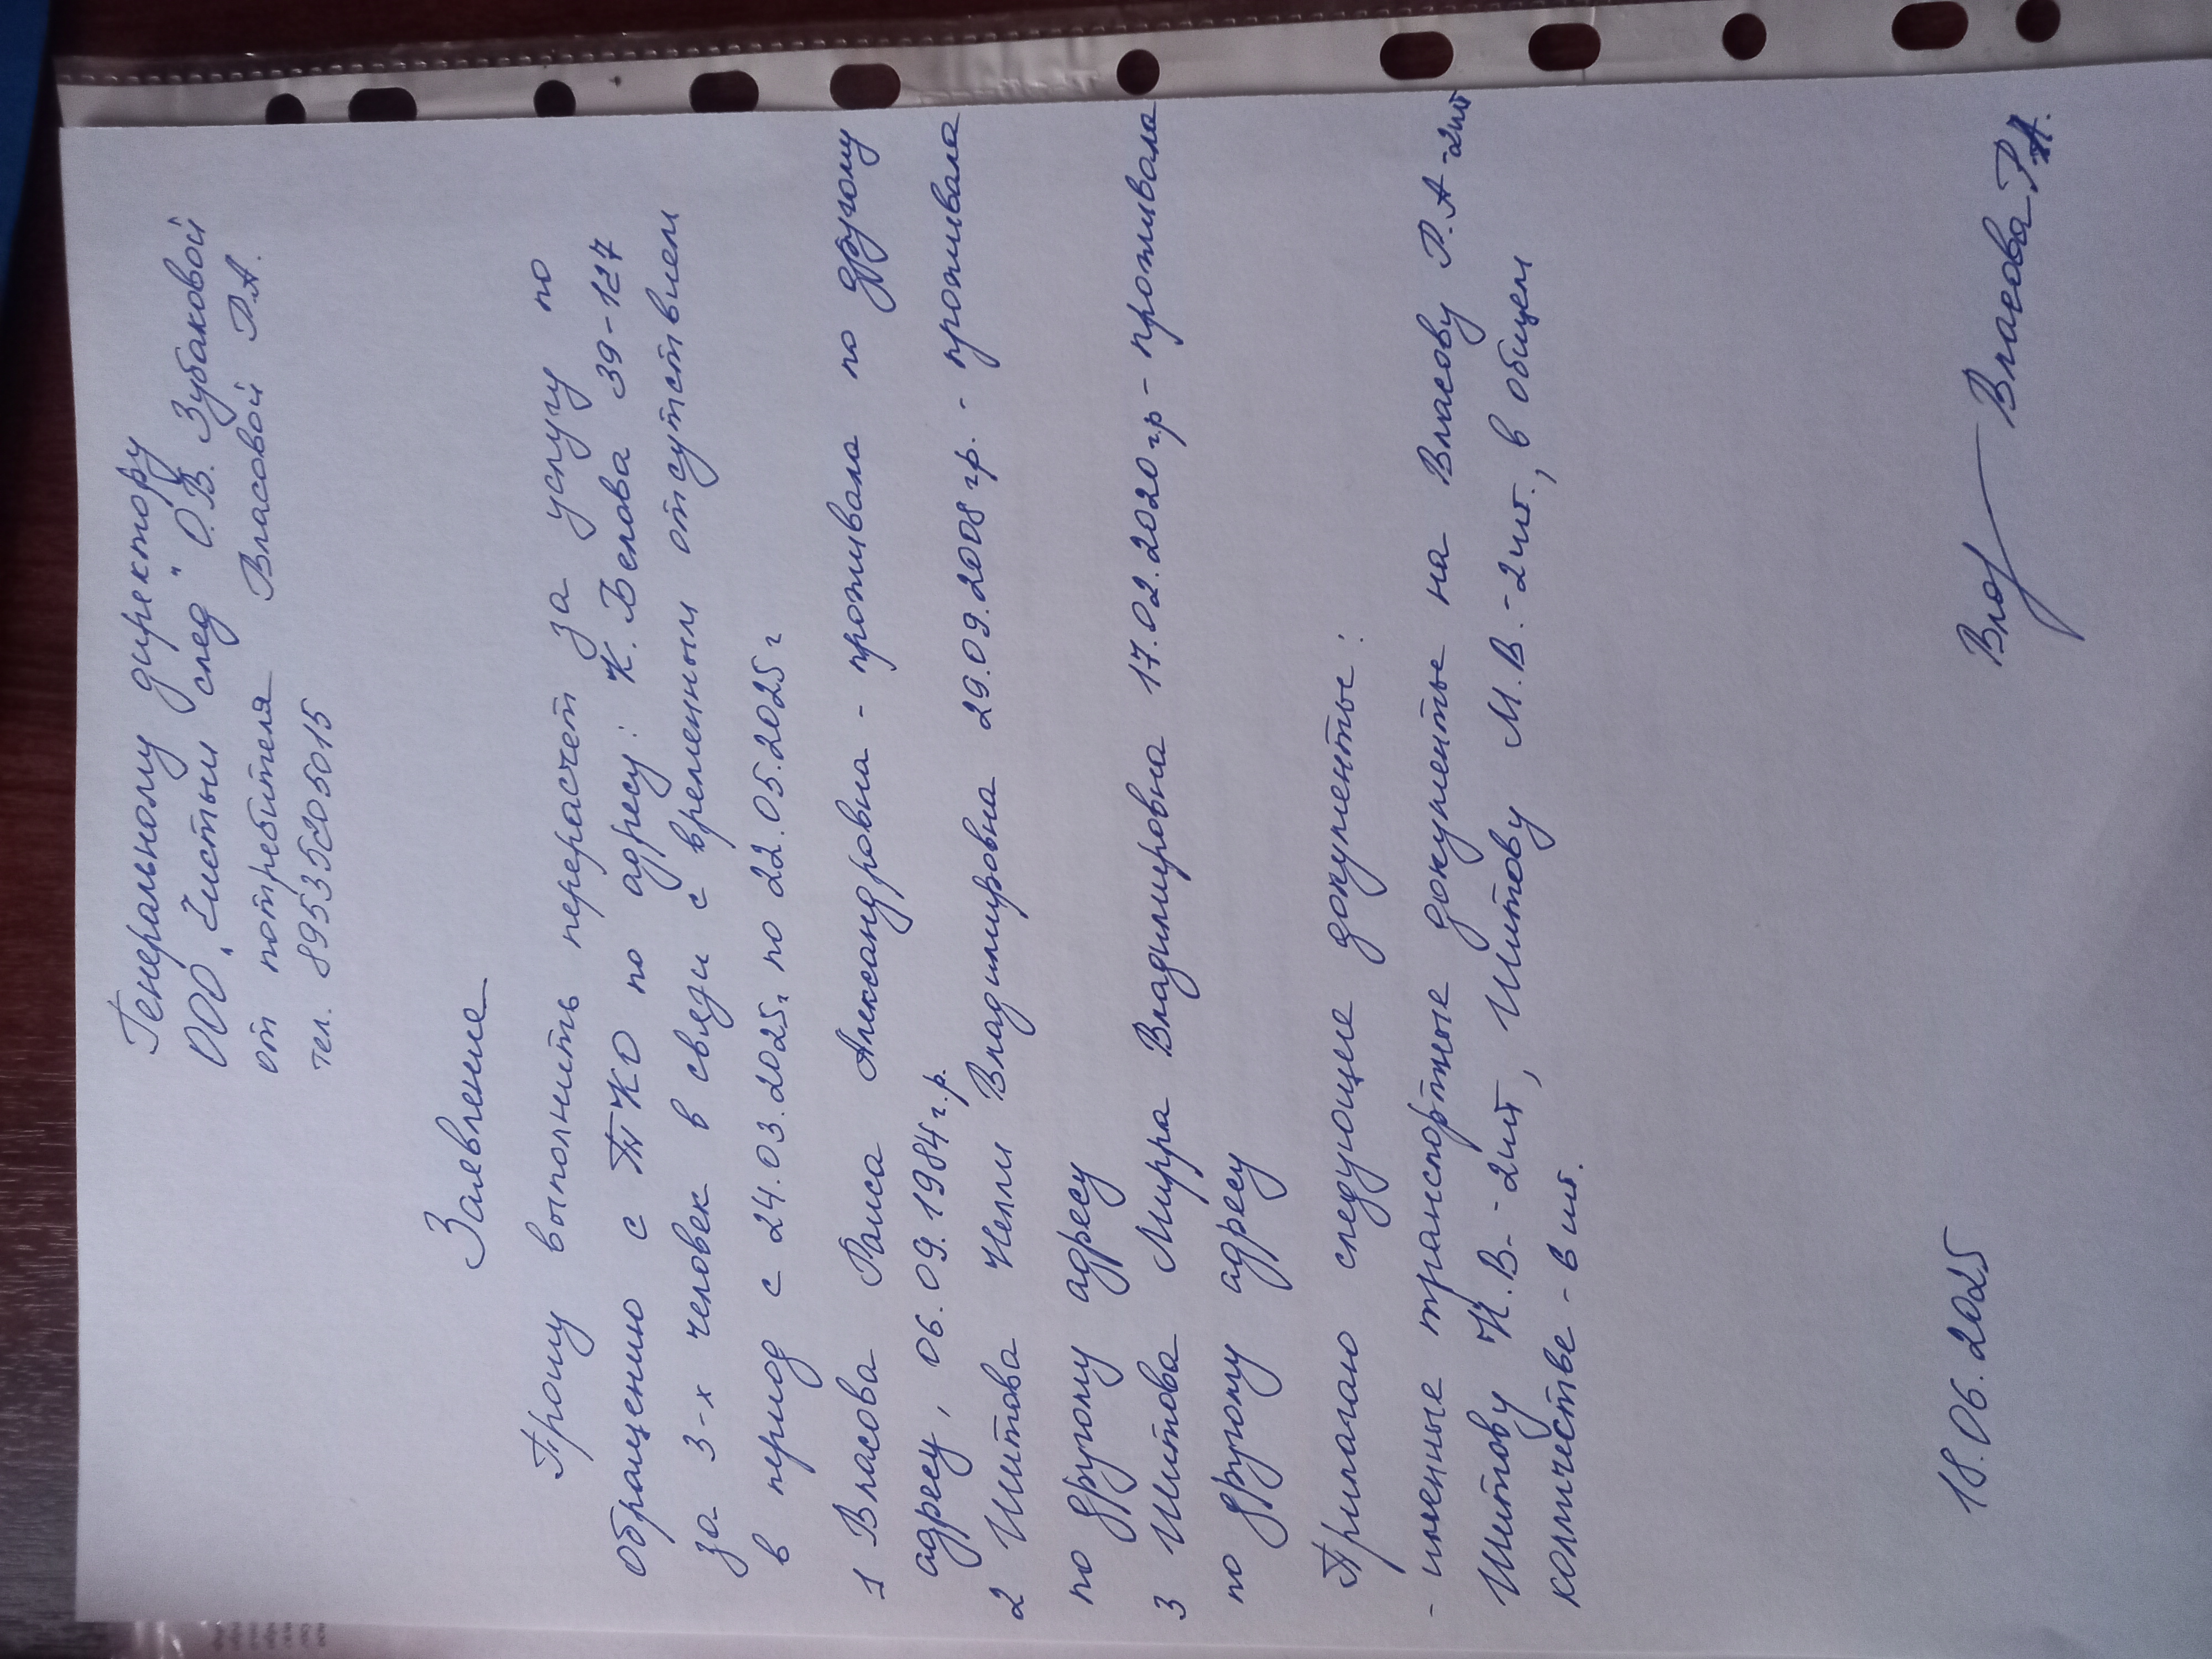 Генеральному директору
ООО "Чистый след" О.В. Зубаковой
от потребителя Власовой Р.А.
тел. 89535205015
Заявление
Прошу выполнить перерасчет за услугу по
обращению с ТКО по адресу: К. Белова 39-127
за 3-х человек в связи с временным отсутствием
в период с 24.03.2025г по 22.05.2025г
1 Власова Раиса Александровна - проживала по другому
адресу, 06.09.1984г.р.
2 Шитова Нелли Владимировна 29.09.2008гр. - проживала
по другому адресу
3 Шитова Мирра Владимировна 17.02.2020г.р - проживала
по другому адресу
Прилагаю следующие документы:
- именные транспортные документы на Власову Р.А -2шт
Шитову Н.В. - 2шт, Шитову М.В. - 2шт., в общем
количестве - 6 шт.
18.06.2025 Власова Р.А.